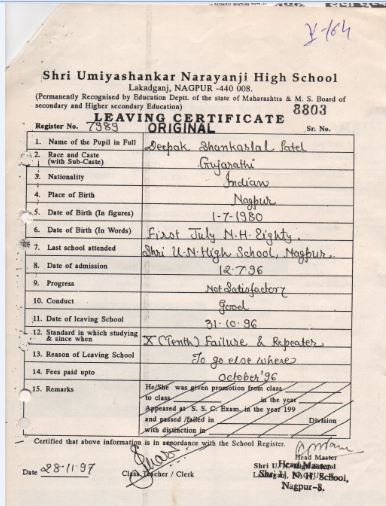 V-/64
Shri Umiyashankar Narayanji High School
Lakadganj, NAGPUR -440 008.
(Permanently Recognised by Education Deptt. of the state of Maharashtra & M. S. Board of
secondary and Higher secondary Education)
8803
LEAVING CERTIFICATE
Register No. 7989 ORIGINAL Sr. No.
1. Name of the Pupil in Full Deepak Shankarlal Patel
2. Race and Caste (with Sub-Caste) Gujarathi
3. Nationality Indian
4. Place of Birth Nagpur
5. Date of Birth (In figures) 1-7-1980
6. Date of Birth (In Words) First July N.H. Eighty.
7. Last school attended Shri U.N. High School, Nagpur.
8. Date of admission 12-7-96
9. Progress Not Satisfactory
10. Conduct Good
11. Date of leaving School 31-10-96
12. Standard in which studying & since when X (Tenth) Failure & Repeater
13. Reason of Leaving School To go else where
14. Fees paid upto October '96
15. Remarks He/She was given promotion from class
to class in the year
Appeared at S. S. C. Exam. in the year 199
and passed /failed in Division
with distinction in
Certified that above information is in accordance with the School Register.
Date 28-11-97 Class Teacher / Clerk
Head Master
Head Master
Shri U. N. High School,
Nagpur-8.